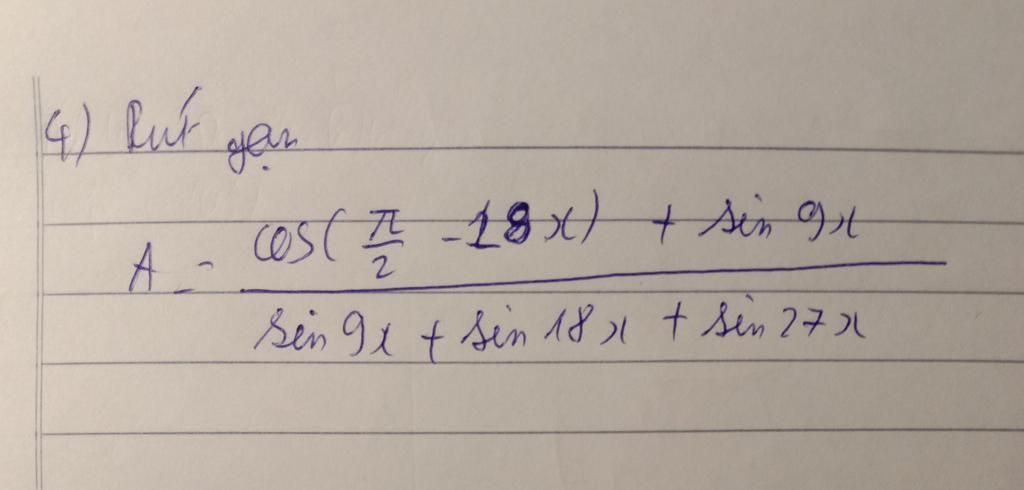 4) Rút gọn
A = cos(π/2 - 18x) + sin 9x
sin 9x + sin 18x + sin 27x